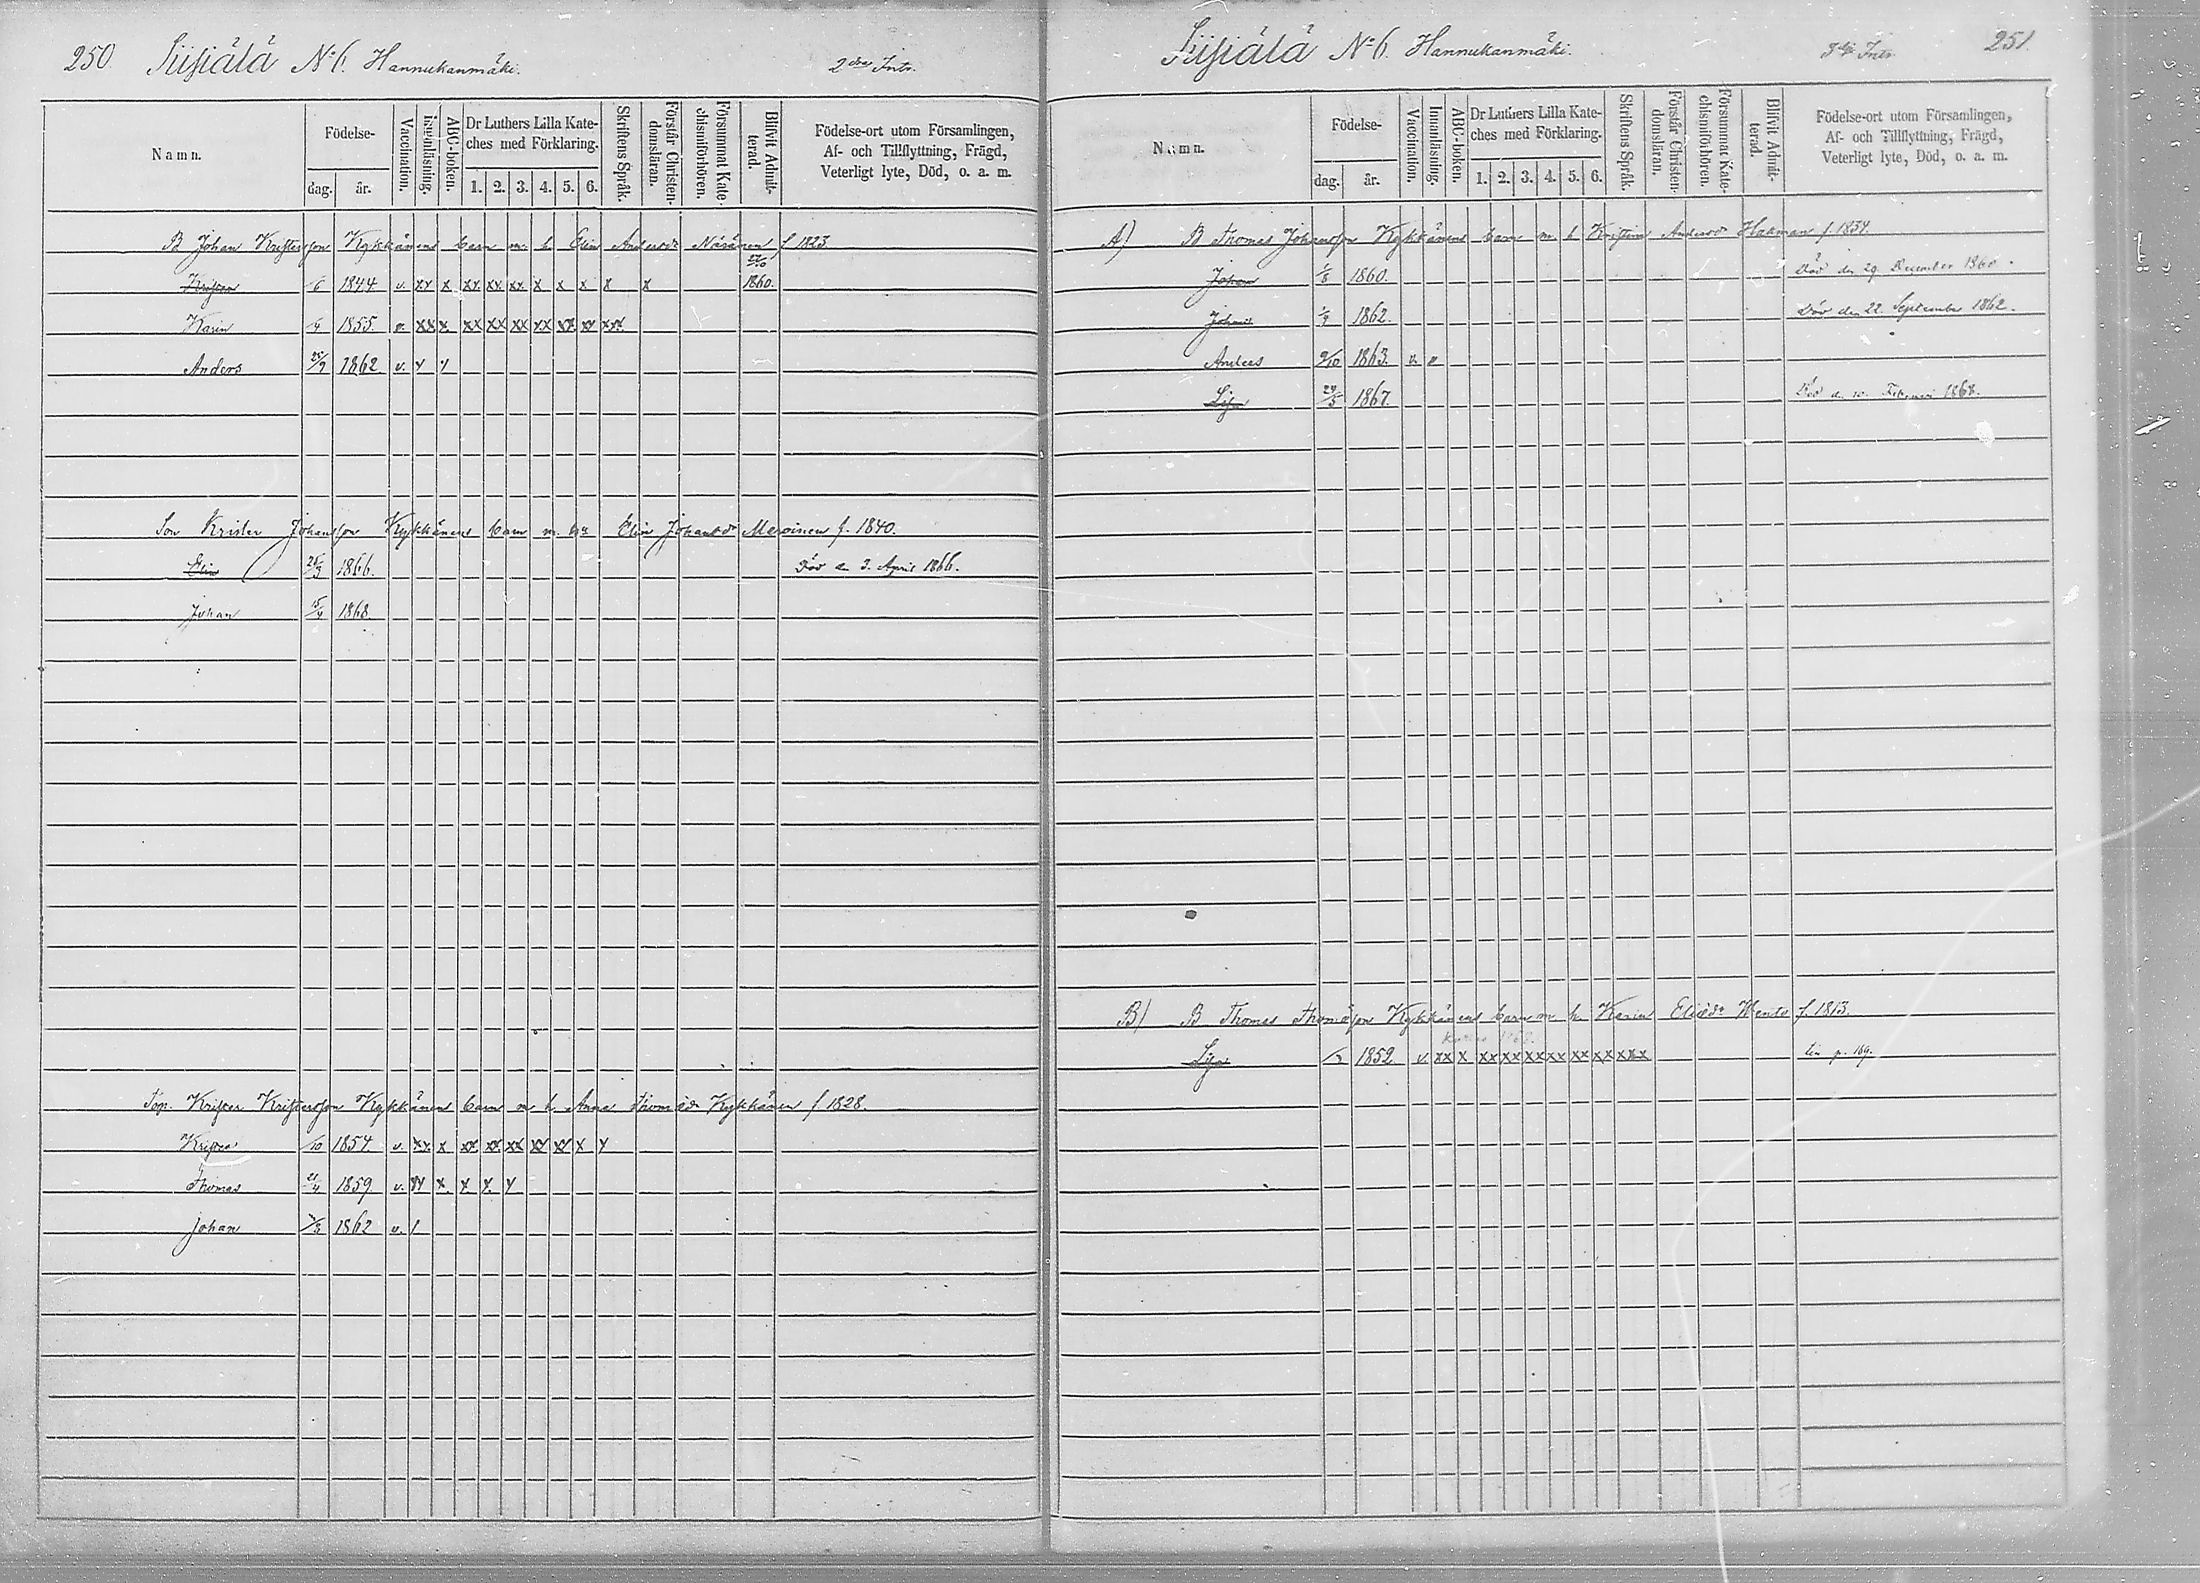 250 Siisiälä No 6. Hannukanmäki. 2dra Intr.
Namn.
Födelse-
dag. år.
Vaccination.
Innanläsning.
ABC-boken.
Dr Luthers Lilla Kate-
ches med Förklaring.
1. 2. 3. 4. 5. 6.
Skriftens Språk.
Förstår Christen-
domsläran.
Försummat Kate-
chismiförhören.
Blifvit Admit-
terad.
Födelse-ort utom Församlingen,
Af- och Tillflyttning, Frägd,
Veterligt lyte, Död, o. a. m.
B Johan Kristersson Kykkänens barn m. h. Elin Andersdr Näränen f 1823
Krister 6 1844 v. xx x xx xx xx x x x x x 1860.
Karin /4 1855. v. xx x xx xx xx xx xx xx xxx
Anders 25/9 1862 v. y y
Son Krister Johansson Kykkänens barn m. hu Elin Johansdr Meroinen f. 1840.
Elin 26/3 1866. Död d. 3. April 1866.
Johan 15/4 1868.
Torp. Krister Kristersson Kykkänens barn m h Anna Thomasdr Kykkänen f 1828.
Krister /10 1854. v. xx x xx xx xx xx xx x y
Thomas 21/4 1859. v. xy x. x. x. y
Johan /3 1862 v. /
Siisiälä No 6. Hannukanmäki. 3dje Intr. 251.
Namn.
Födelse-
dag. år.
Vaccination.
Innanläsning.
ABC-boken.
Dr Luthers Lilla Kate-
ches med Förklaring.
1. 2. 3. 4. 5. 6.
Skriftens Språk.
Förstår Christen-
domsläran.
Försummat Kate-
chismiförhören.
Blifvit Admit-
terad.
Födelse-ort utom Församlingen,
Af- och Tillflyttning, Frägd,
Veterligt lyte, Död, o. a. m.
A) B Thomas Johansson Kykkänens barn m h Kristina Andersdr Hakman f. 1834.
Johan 1/8 1860. Död den 29. December 1860.
Johan 1/9 1862. Död den 22. September 1862.
Andreas 9/10 1863. v.
Lisa 24/5 1867. Död d. 10. Februari 1868.
B) B Thomas Thomasson Kykkänens barn m h. Karin f. 1813.
Lisa /2 1852. v. xx x xx xx xx xx xx xx xxx p. 169.